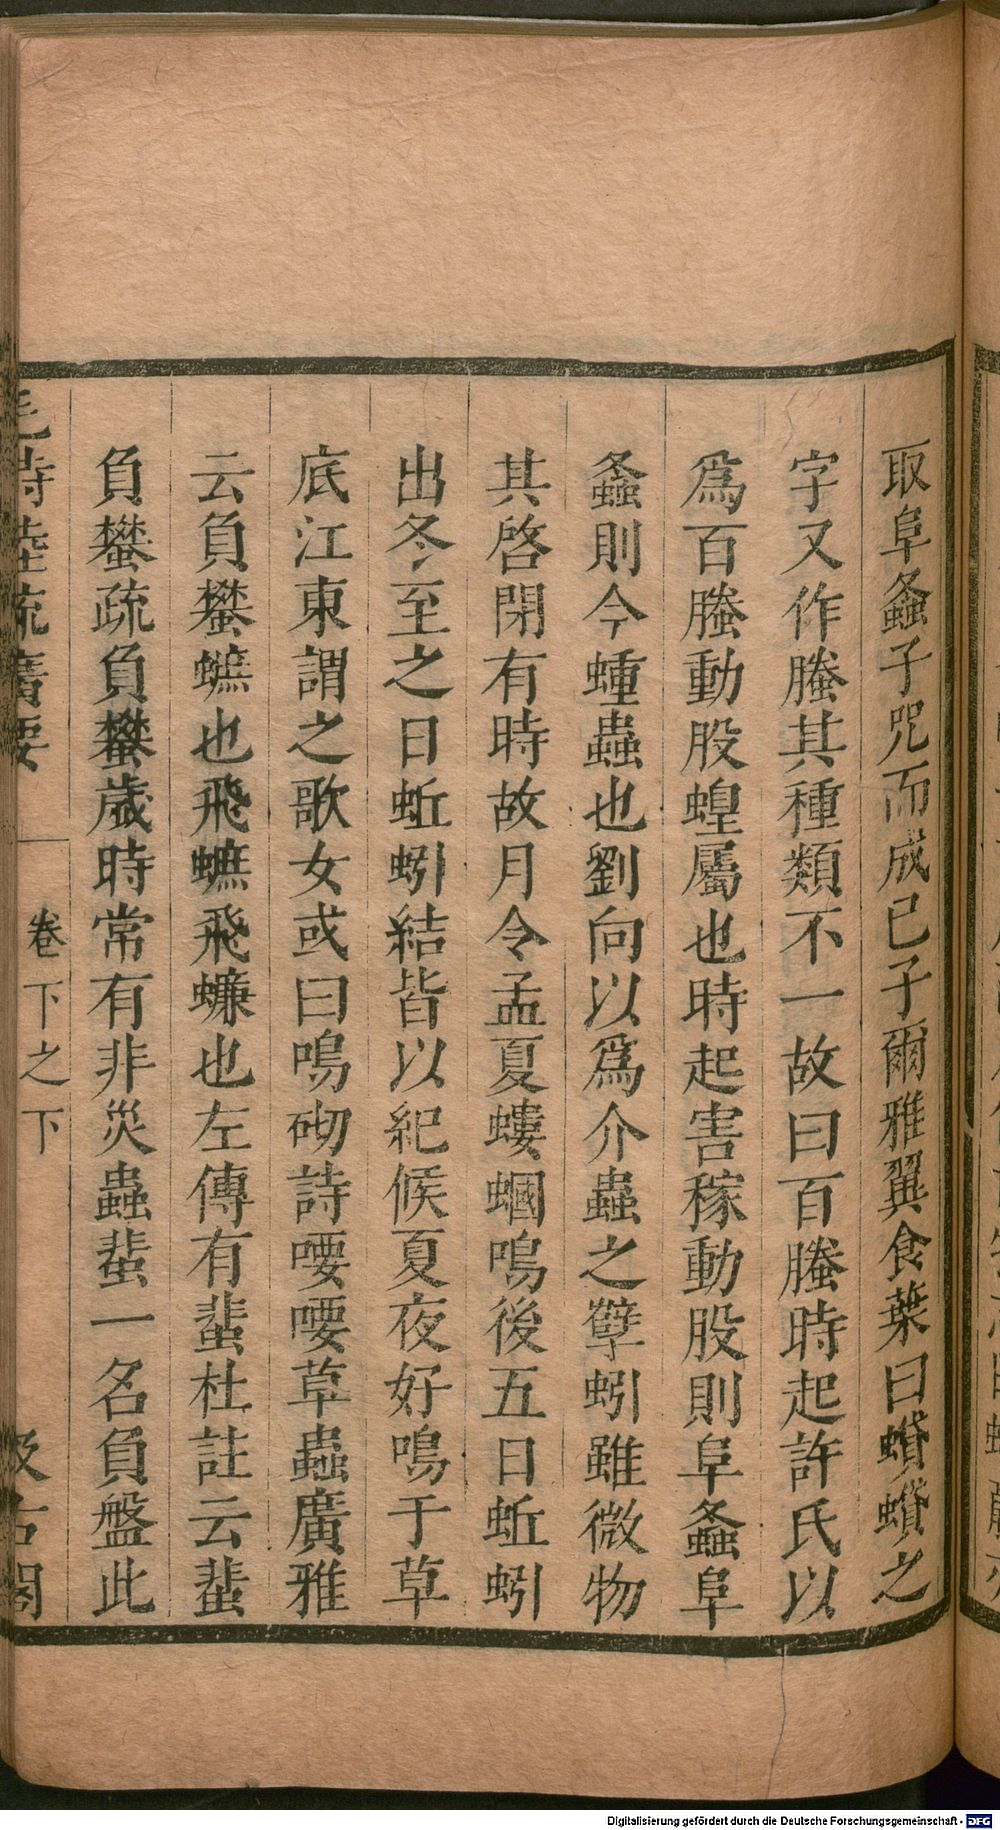 取阜螽子咒而成已子爾雅翼食葉曰蟘蟘之
字又作螣其種類不一故曰百螣時起許氏以
爲百螣動股蝗屬也時起害稼動股則阜螽阜
螽則今蝩蟲也劉向以爲介蟲之孽蚓雖微物
其啓閉有時故月令孟夏螻蟈鳴後五日蚯蚓
出冬至之日蚯蚓結皆以紀候夏夜好鳴于草
底江東謂之歌女或曰鳴砌詩喓喓草蟲廣雅
云負蠜蟅也飛蟅飛蠊也左傳有蜚杜註云蜚
負蠜疏負蠜歲時常有非災蟲蜚一名負盤此
毛詩陸疏廣要 卷下之下 汲古閣
Digitalisierung gefördert durch die Deutsche Forschungsgemeinschaft - DFG